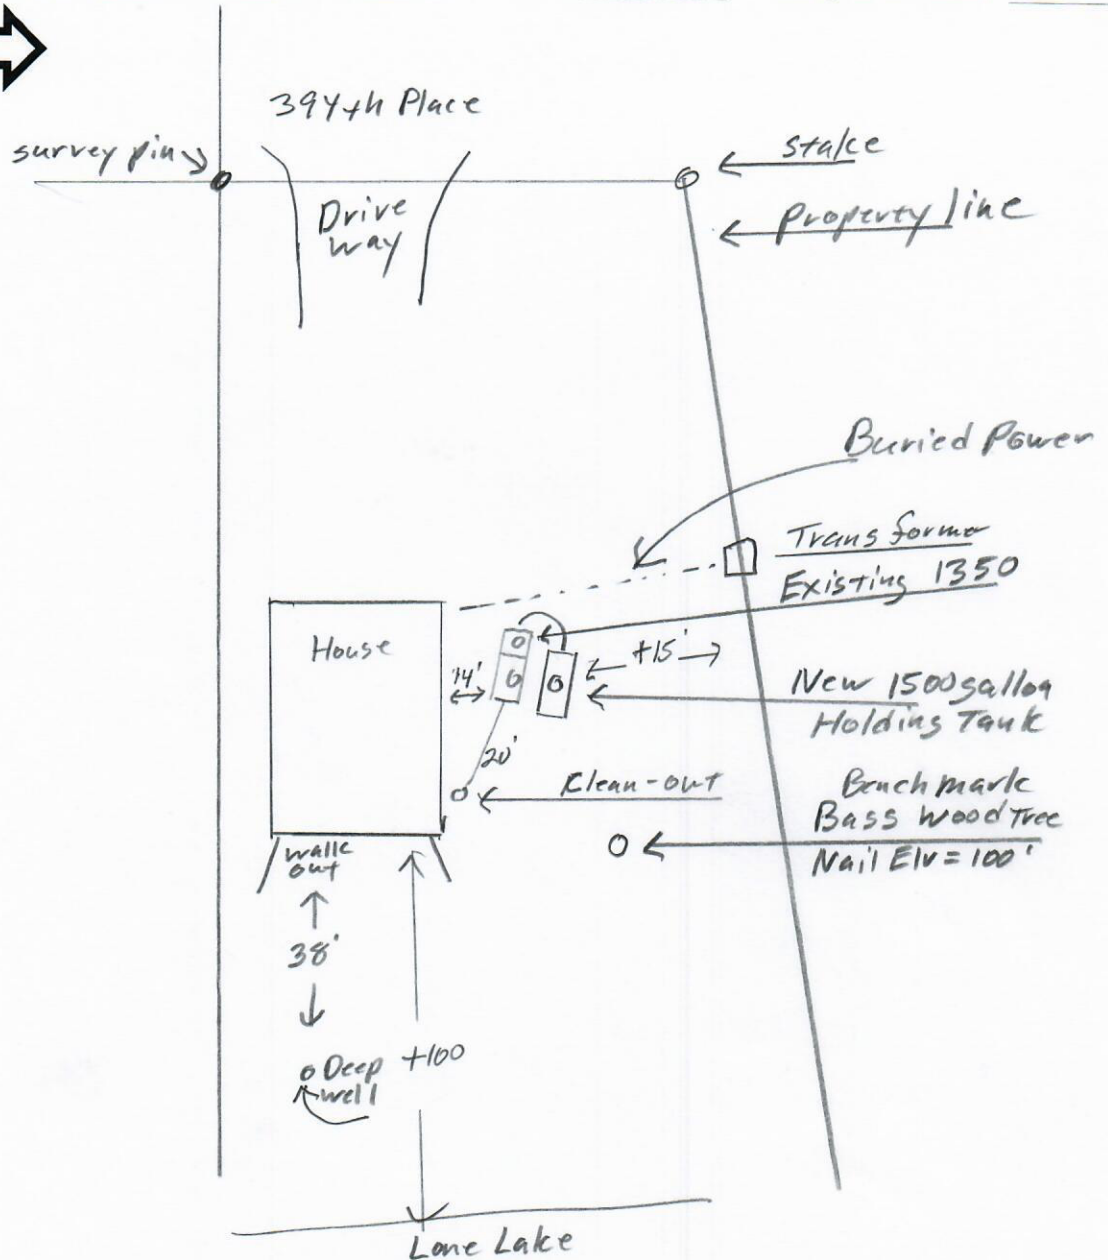 394th Place
survey pin
stake
Drive
way
Property line
Buried Power
Transforme
Existing 1350
House
+15'
14'
New 1500 gallon
Holding Tank
20'
Clean-out
Bench mark
Bass Wood Tree
Nail Elv = 100'
walk
out
38'
Deep
well
+100
Lone Lake